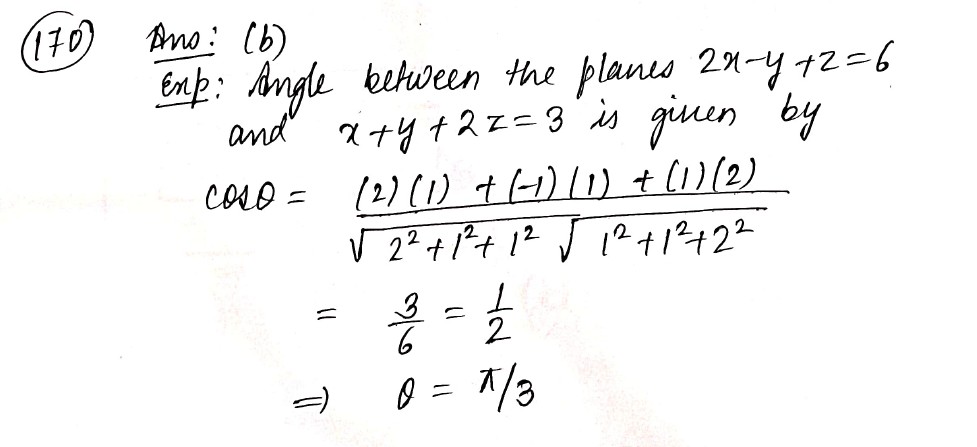 (170) Ans: (b)
Exp: Angle between the planes 2x-y+z=6
and x+y+2z=3 is given by
cosθ = (2)(1) + (-1)(1) + (1)(2) / √2²+1²+1² √1²+1²+2²
= 3/6 = 1/2
⇒ θ = π/3